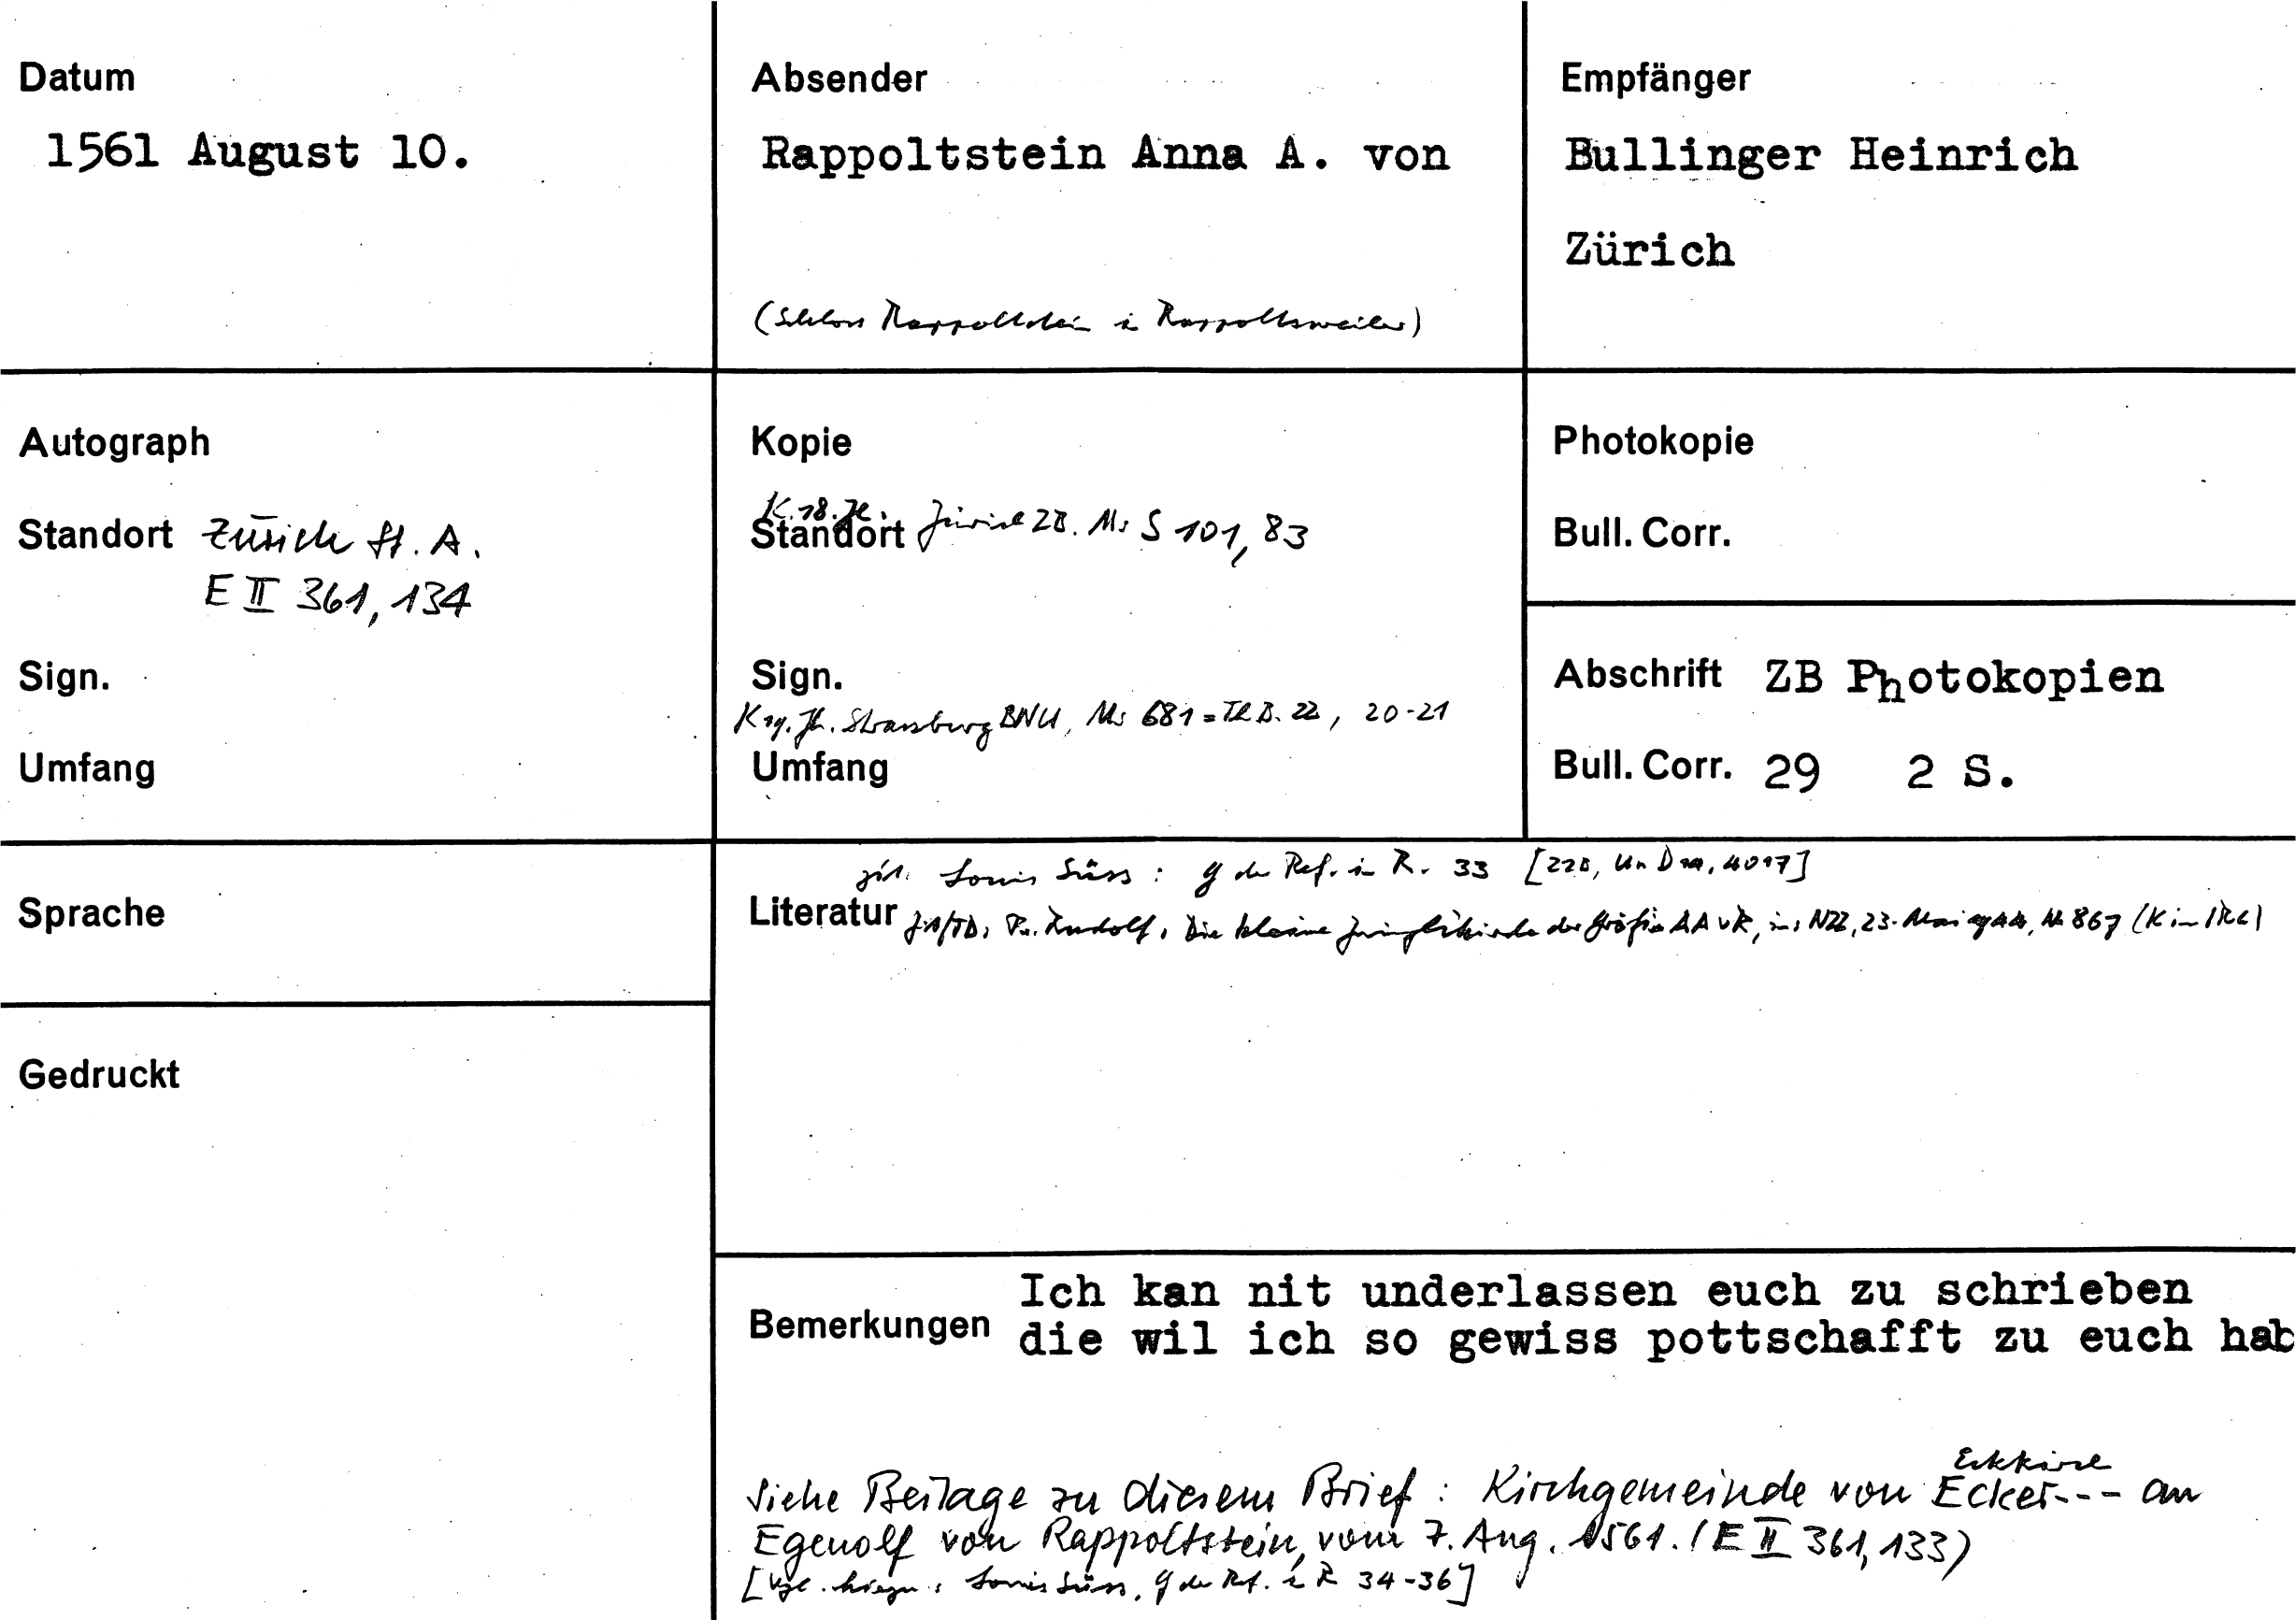 Datum
1561 August 10.
Absender
Rappoltstein Anna A. von
(Schloss Rappoltstein i Rappoltsweiler)
Empfänger
Bullinger Heinrich
Zürich
Autograph
Standort Zürich St. A.
E II 361, 134
Sign.
Umfang
Kopie
K. 18. Jh.
Standort Zürich ZB. Ms S 101, 83
Sign.
K 19. Jh. Strassburg BNU, Ms 681 = Th B. 22, 20-21
Umfang
Photokopie
Bull. Corr.
Abschrift ZB Photokopien
Bull. Corr. 29 2 S.
Sprache
Gedruckt
zit. Louis Süss: G der Ref. in R. 33
Literatur Rudolf, Die kleine Zwinglikirche der Gräfin AA v R, in: NZZ, 23. Mai
Bemerkungen Ich kan nit underlassen euch zu schrieben
die wil ich so gewiss pottschafft zu euch hab
Eckkirch
Siehe Beilage zu diesem Brief: Kirchgemeinde von Ecker--- an
Egenolf von Rappoltstein, vom 7. Aug. 1561. (E II 361, 133)
[Vgl. hiezu: Louis Süss, G der Ref. i R 34-36]